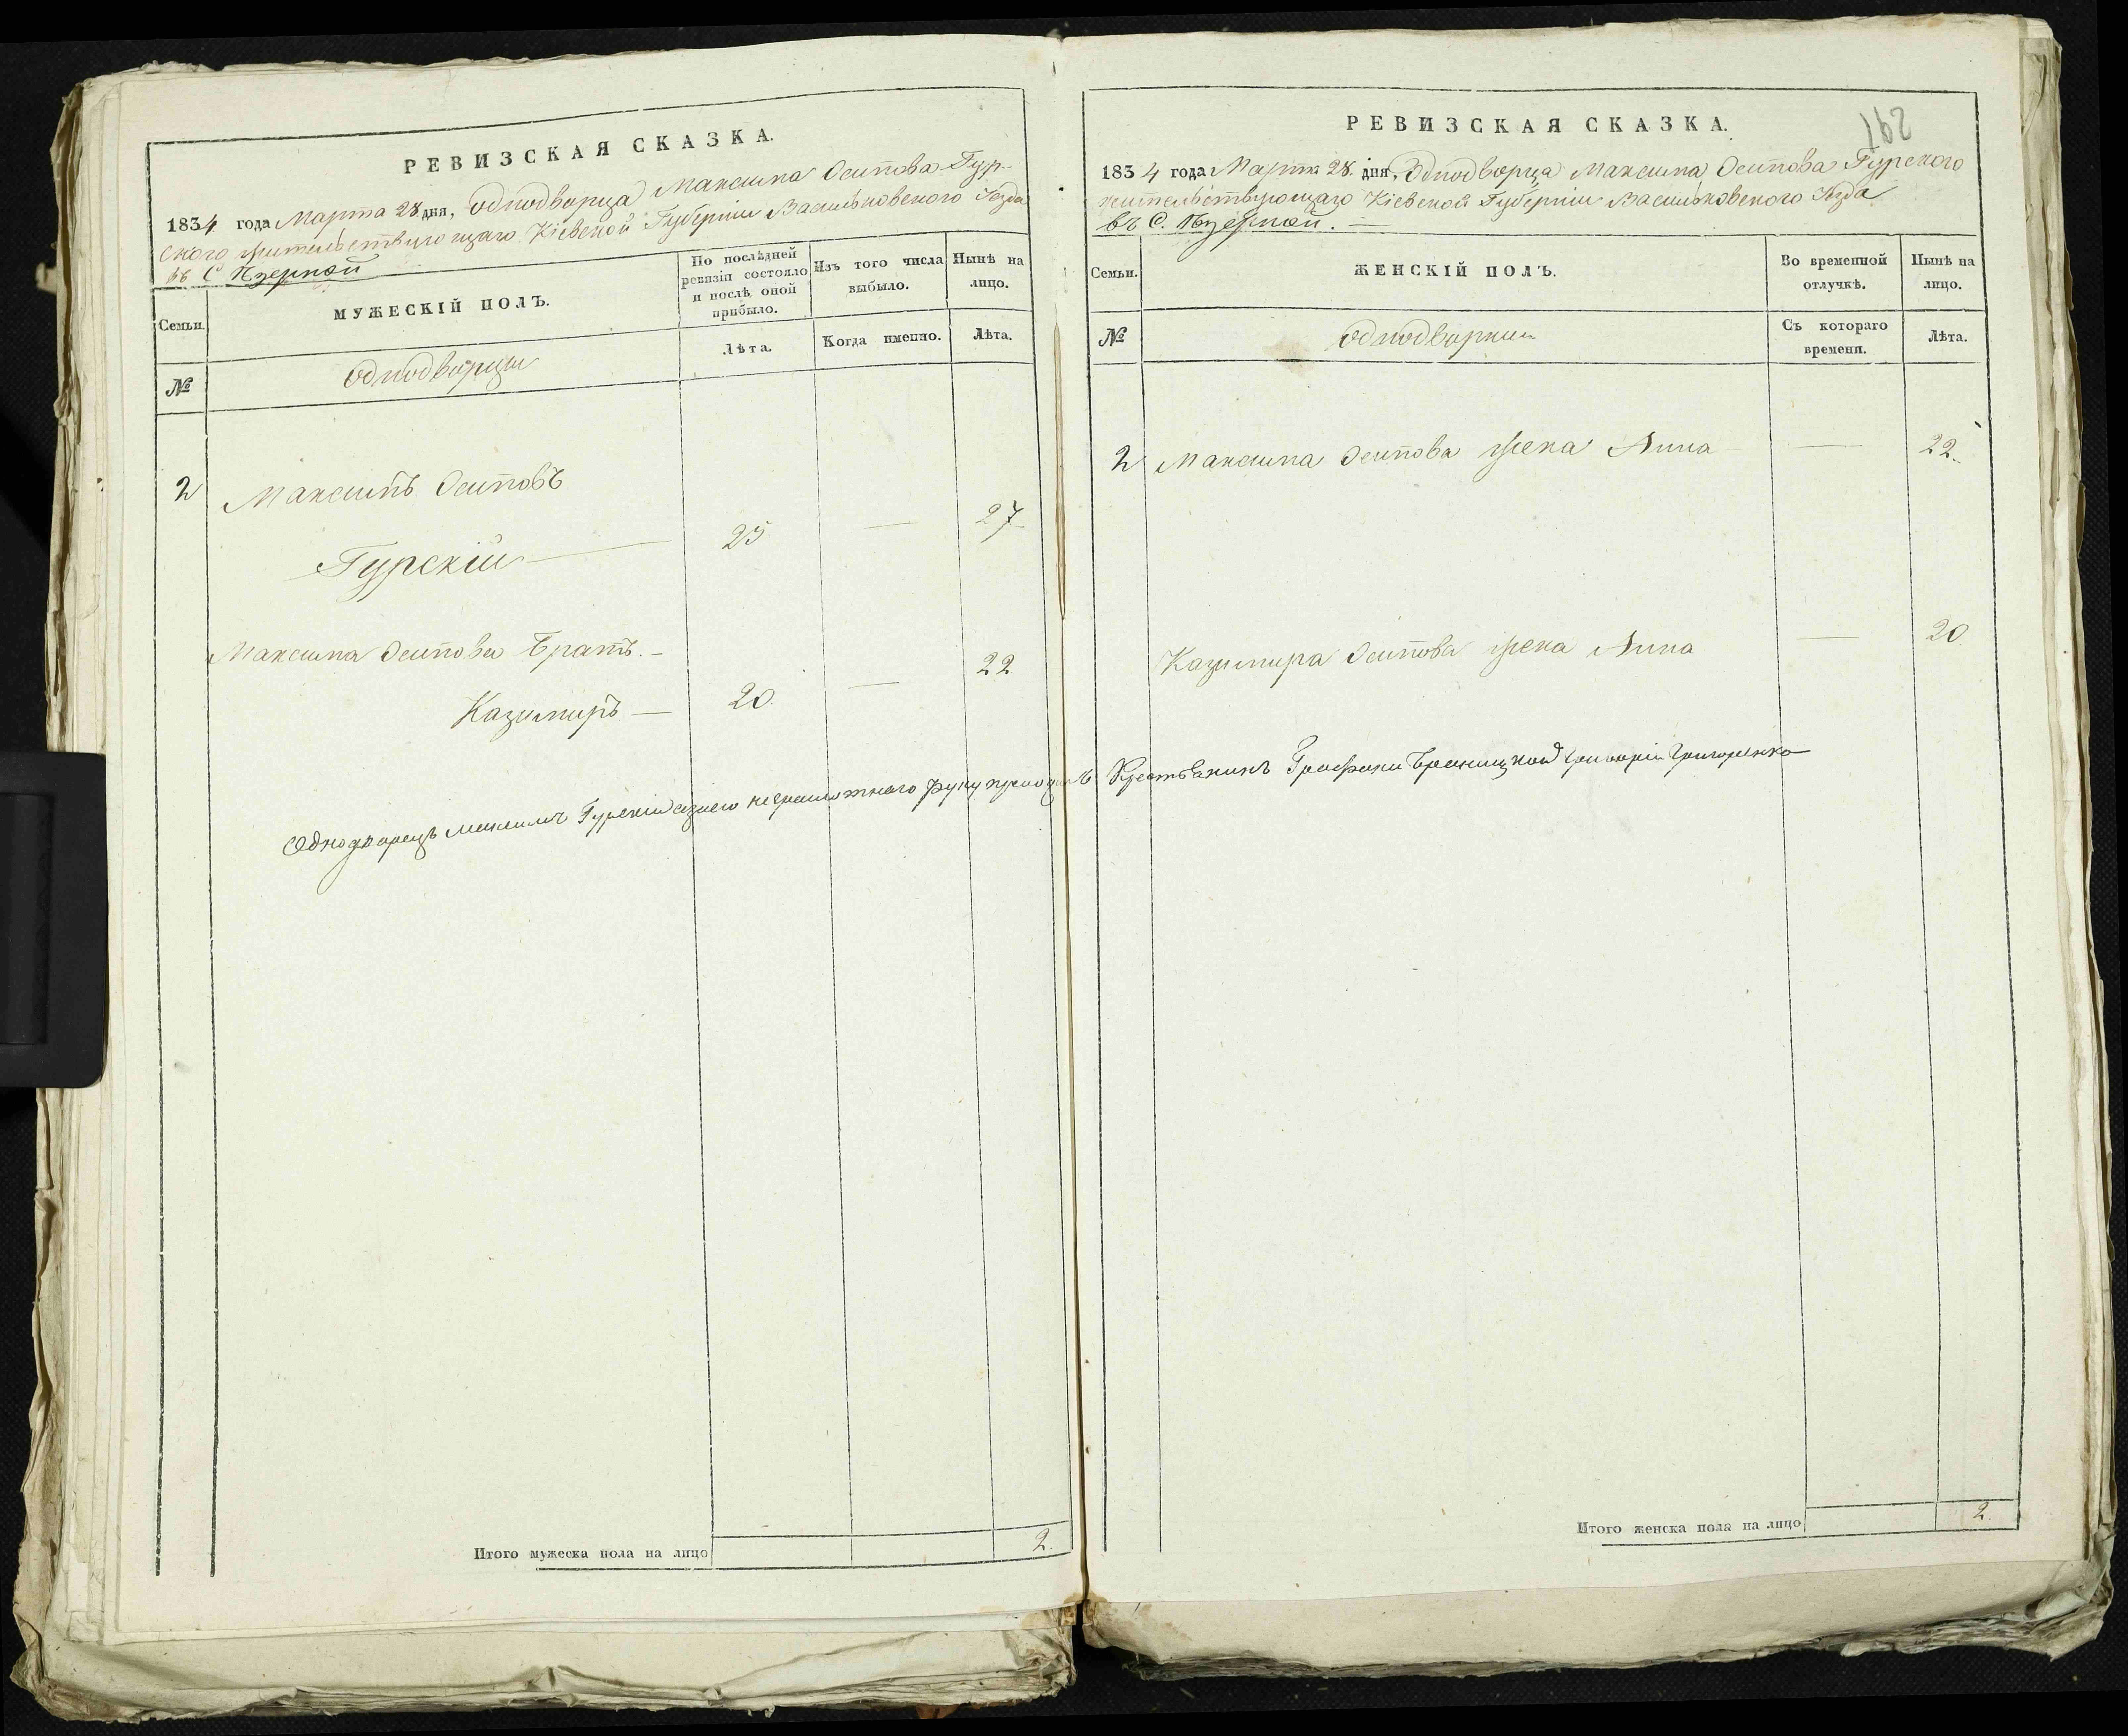 РЕВИЗСКАЯ СКАЗКА.
1834 года Марта 28 дня, Однодворца Максима Осипова Гур-
ского жительствующаго Кіевской Губерніи Васильковского Уѣзда
въ С.
Семьи.
МУЖЕСКІЙ ПОЛЪ.
По послѣдней ревизіи состояло и послѣ оной прибыло.
Изъ того числа выбыло.
Нынѣ на лицо.
№
Однодворцы
Лѣта.
Когда именно.
Лѣта.
2 Максимъ Осиповъ
Гурскій 25 — 27
Максима Осипова Братъ.
Казимиръ — 20. — 22
Итого мужеска пола на лицо 2.
РЕВИЗСКАЯ СКАЗКА.
1834 года Марта 28. дня, Однодворца Максима Осипова Гурского
жительствующаго Кіевской Губерніи Васильковского Уѣзда
въ С.
Семьи.
ЖЕНСКІЙ ПОЛЪ.
Во временной отлучкѣ.
Нынѣ на лицо.
№
Однодворки
Съ котораго времени.
Лѣта.
2 Максима Осипова жена Анна — 22.
Казимира Осипова жена Анна — 20
Однодворецъ Максимъ Гурскій неграмотнаго руку приложилъ Крестьянинъ Графини Браницкой Григорій Григоренко
Итого женска пола на лицо 2.